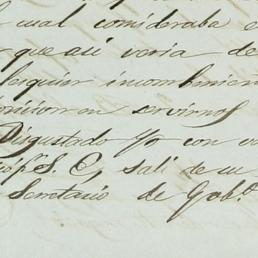 cual consideraba e
que asi veria de
lesquier incombenien
en servirnos
Disgustado Yo con v
S. E, sali de su
Secretario de Gob.o